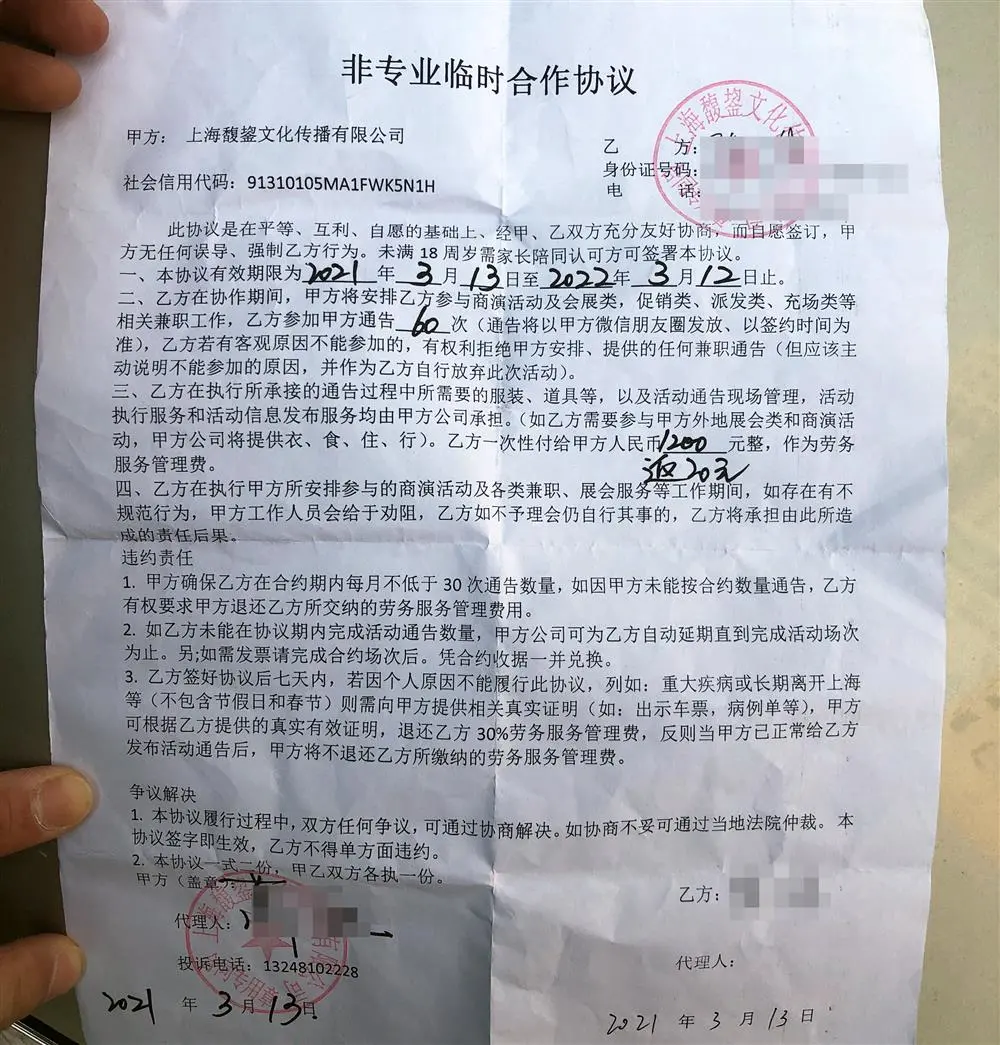 非专业临时合作协议
甲方： 上海馥鋆文化传播有限公司
乙 方：
社会信用代码：91310105MA1FWK5N1H
身份证号码：
电 话：
此协议是在平等、互利、自愿的基础上、经甲、乙双方充分友好协商，而自愿签订，甲
方无任何误导、强制乙方行为。未满 18 周岁需家长陪同认可方可签署本协议。
一、本协议有效期限为2021 年 3 月 13 日至 2022 年 3 月 12 日止。
二、乙方在协作期间，甲方将安排乙方参与商演活动及会展类，促销类、派发类、充场类等
相关兼职工作，乙方参加甲方通告 60 次（通告将以甲方微信朋友圈发放、以签约时间为
准），乙方若有客观原因不能参加的，有权利拒绝甲方安排、提供的任何兼职通告（但应该主
动说明不能参加的原因，并作为乙方自行放弃此次活动）。
三、乙方在执行所承接的通告过程中所需要的服装、道具等，以及活动通告现场管理，活动
执行服务和活动信息发布服务均由甲方公司承担。（如乙方需要参与甲方外地展会类和商演活
动，甲方公司将提供衣、食、住、行）。乙方一次性付给甲方人民币1200 元整，作为劳务
服务管理费。
返20元
四、乙方在执行甲方所安排参与的商演活动及各类兼职、展会服务等工作期间，如存在有不
规范行为，甲方工作人员会给于劝阻，乙方如不予理会仍自行其事的，乙方将承担由此所造
成的责任后果。
违约责任
1. 甲方确保乙方在合约期内每月不低于 30 次通告数量，如因甲方未能按合约数量通告，乙方
有权要求甲方退还乙方所交纳的劳务服务管理费用。
2. 如乙方未能在协议期内完成活动通告数量，甲方公司可为乙方自动延期直到完成活动场次
为止。另;如需发票请完成合约场次后。凭合约收据一并兑换。
3. 乙方签好协议后七天内，若因个人原因不能履行此协议，列如：重大疾病或长期离开上海
等（不包含节假日和春节）则需向甲方提供相关真实证明（如：出示车票，病例单等），甲方
可根据乙方提供的真实有效证明，退还乙方 30%劳务服务管理费，反则当甲方已正常给乙方
发布活动通告后，甲方将不退还乙方所缴纳的劳务服务管理费。
争议解决
1. 本协议履行过程中，双方任何争议，可通过协商解决。如协商不妥可通过当地法院仲裁。 本
协议签字即生效，乙方不得单方面违约。
2. 本协议一式二份，甲乙双方各执一份。
甲方（盖章）：
乙方：
代理人：
代理人：
投诉电话：13248102228
2021 年 3 月 13 日
2021 年 3 月 13 日